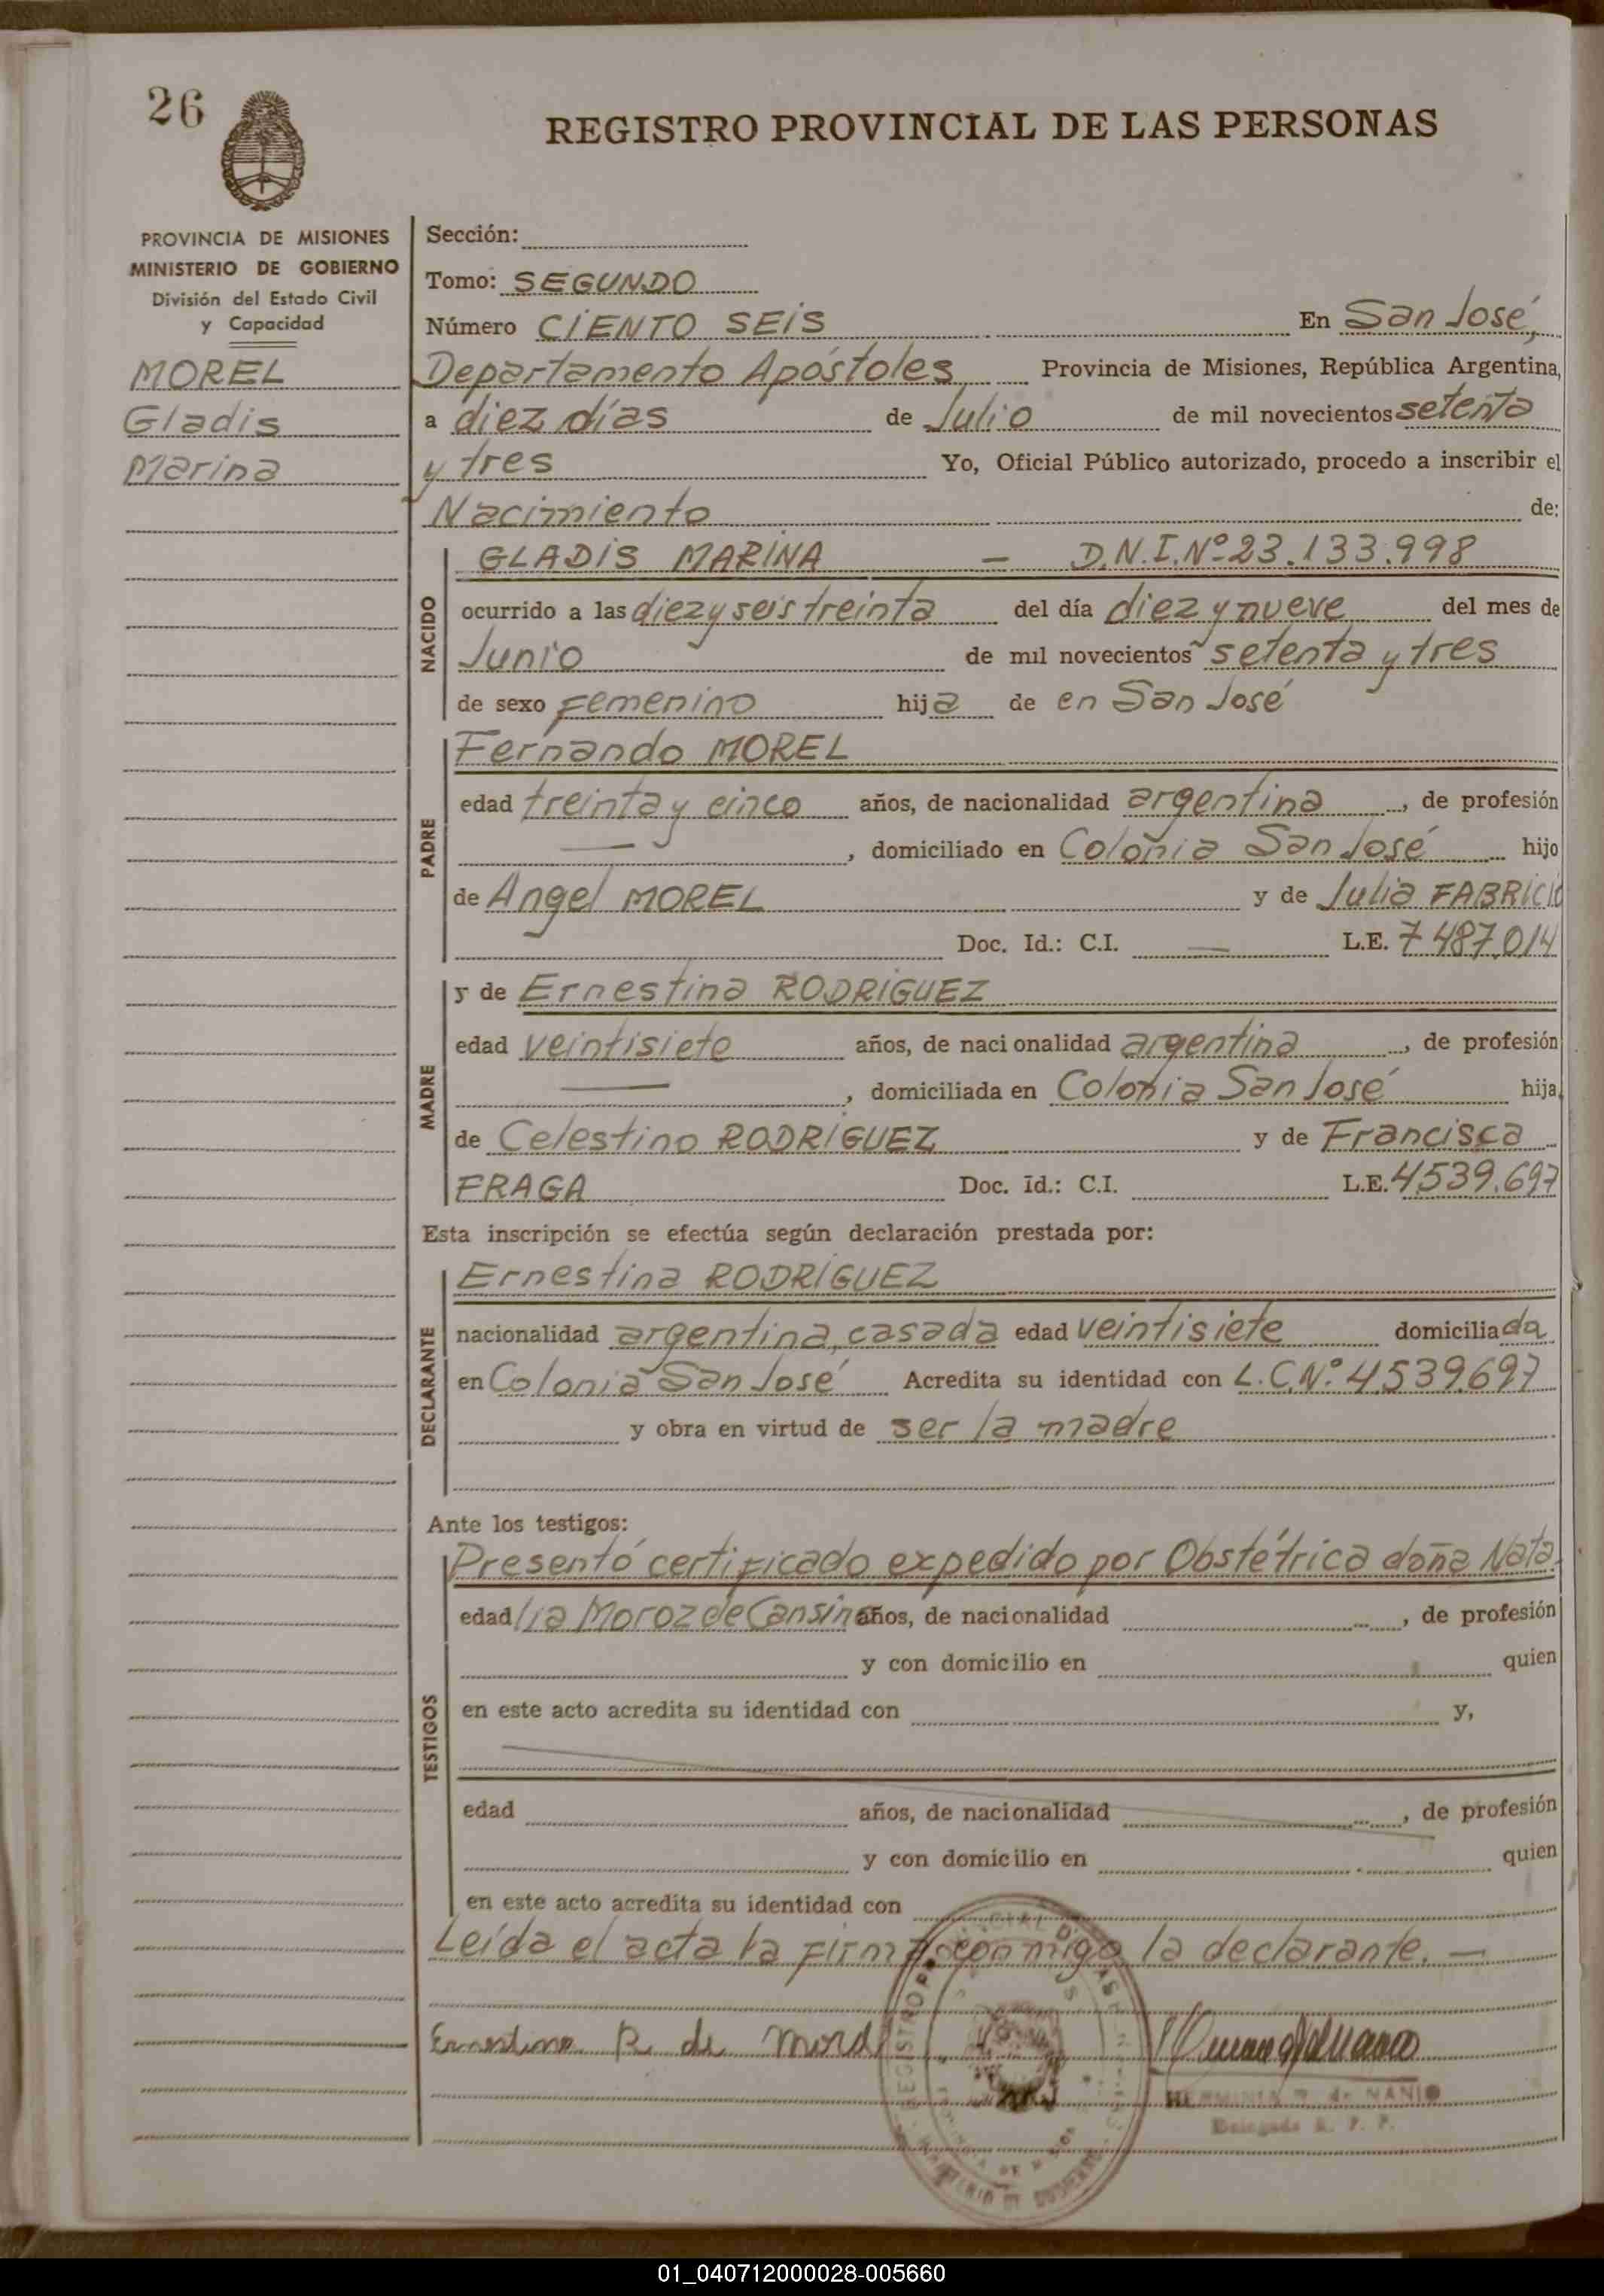 26
REGISTRO PROVINCIAL DE LAS PERSONAS
PROVINCIA DE MISIONES
MINISTERIO DE GOBIERNO
División del Estado Civil
y Capacidad
MOREL
Gladis
Marina
Sección:
Tomo: SEGUNDO
Número CIENTO SEIS En San José,
Departamento Apóstoles Provincia de Misiones, República Argentina,
a diez días de Julio de mil novecientos setenta
y tres Yo, Oficial Público autorizado, procedo a inscribir el
Nacimiento de:
NACIDO
GLADIS MARINA — D.N.I. Nº 23.133.998
ocurrido a las diez y seis treinta del día diez y nueve del mes de
Junio de mil novecientos setenta y tres
de sexo femenino hija de en San José
PADRE
Fernando MOREL
edad treinta y cinco años, de nacionalidad argentina, de profesión
—, domiciliado en Colonia San José hijo
de Angel MOREL y de Julia FABRICIO
Doc. Id.: C.I. — L.E. 7487.014
MADRE
y de Ernestina RODRIGUEZ
edad veintisiete años, de nacionalidad argentina, de profesión
—, domiciliada en Colonia San José hija
de Celestino RODRIGUEZ y de Francisca
FRAGA Doc. Id.: C.I. L.E. 4.539.697
Esta inscripción se efectúa según declaración prestada por:
DECLARANTE
Ernestina RODRIGUEZ
nacionalidad argentina, casada edad veintisiete domiciliada
en Colonia San José Acredita su identidad con L.C.Nº 4.539.697
y obra en virtud de ser la madre
Ante los testigos:
TESTIGOS
Presentó certificado expedido por Obstétrica doña Nata-
edad lia Moroz de Cansino años, de nacionalidad , de profesión
y con domicilio en quien
en este acto acredita su identidad con y,
edad años, de nacionalidad , de profesión
y con domicilio en quien
en este acto acredita su identidad con
Leída el acta la firma conmigo la declarante. —
Ernestina R. de Morel
HERMINIA de NANIO
Delegada R. P. P.
01_040712000028-005660